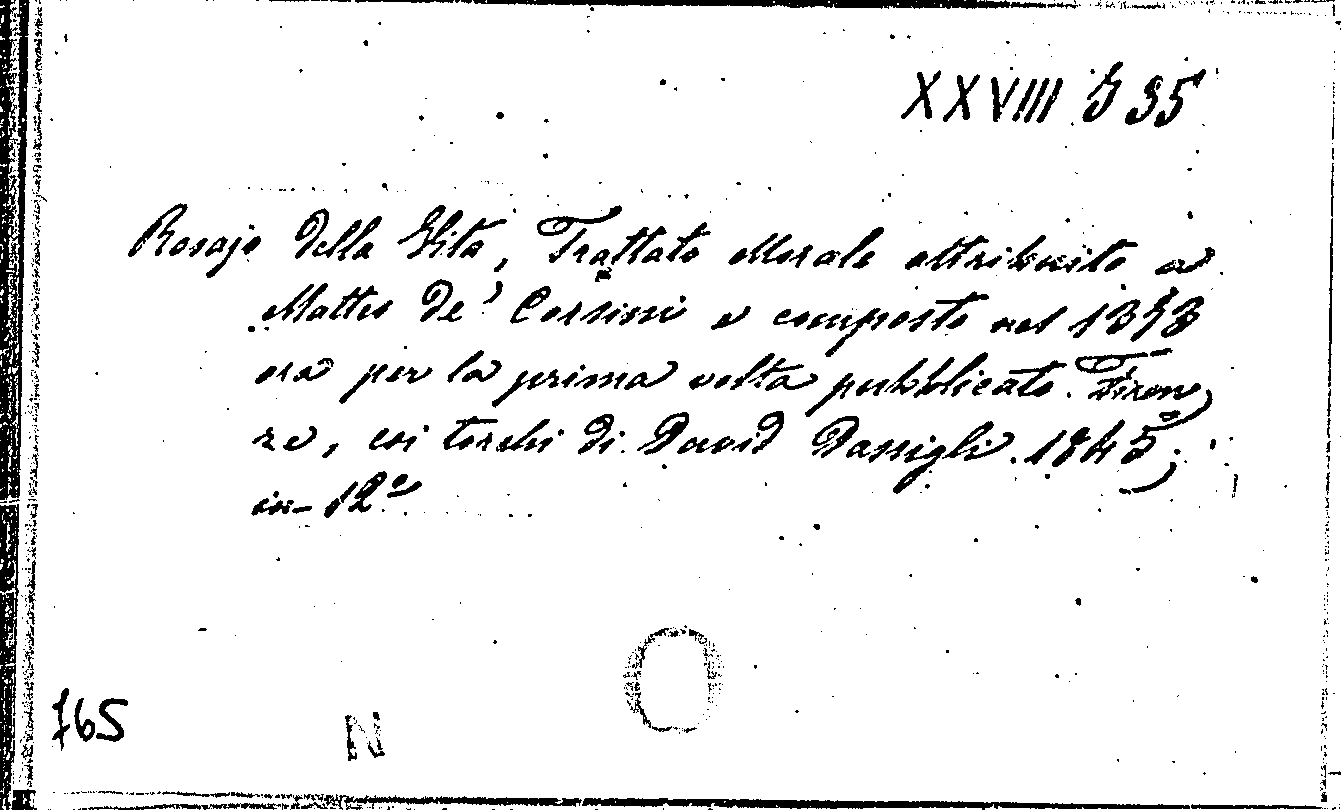 XXVIII G 35
Rosajo della Vita, Trattato Morale attribuito a
Matteo de' Corsini e composto nel 1373
ora per la prima volta pubblicato. Firen
ze, coi torchi di David Passigli. 1845,
in-12º
765
N
O